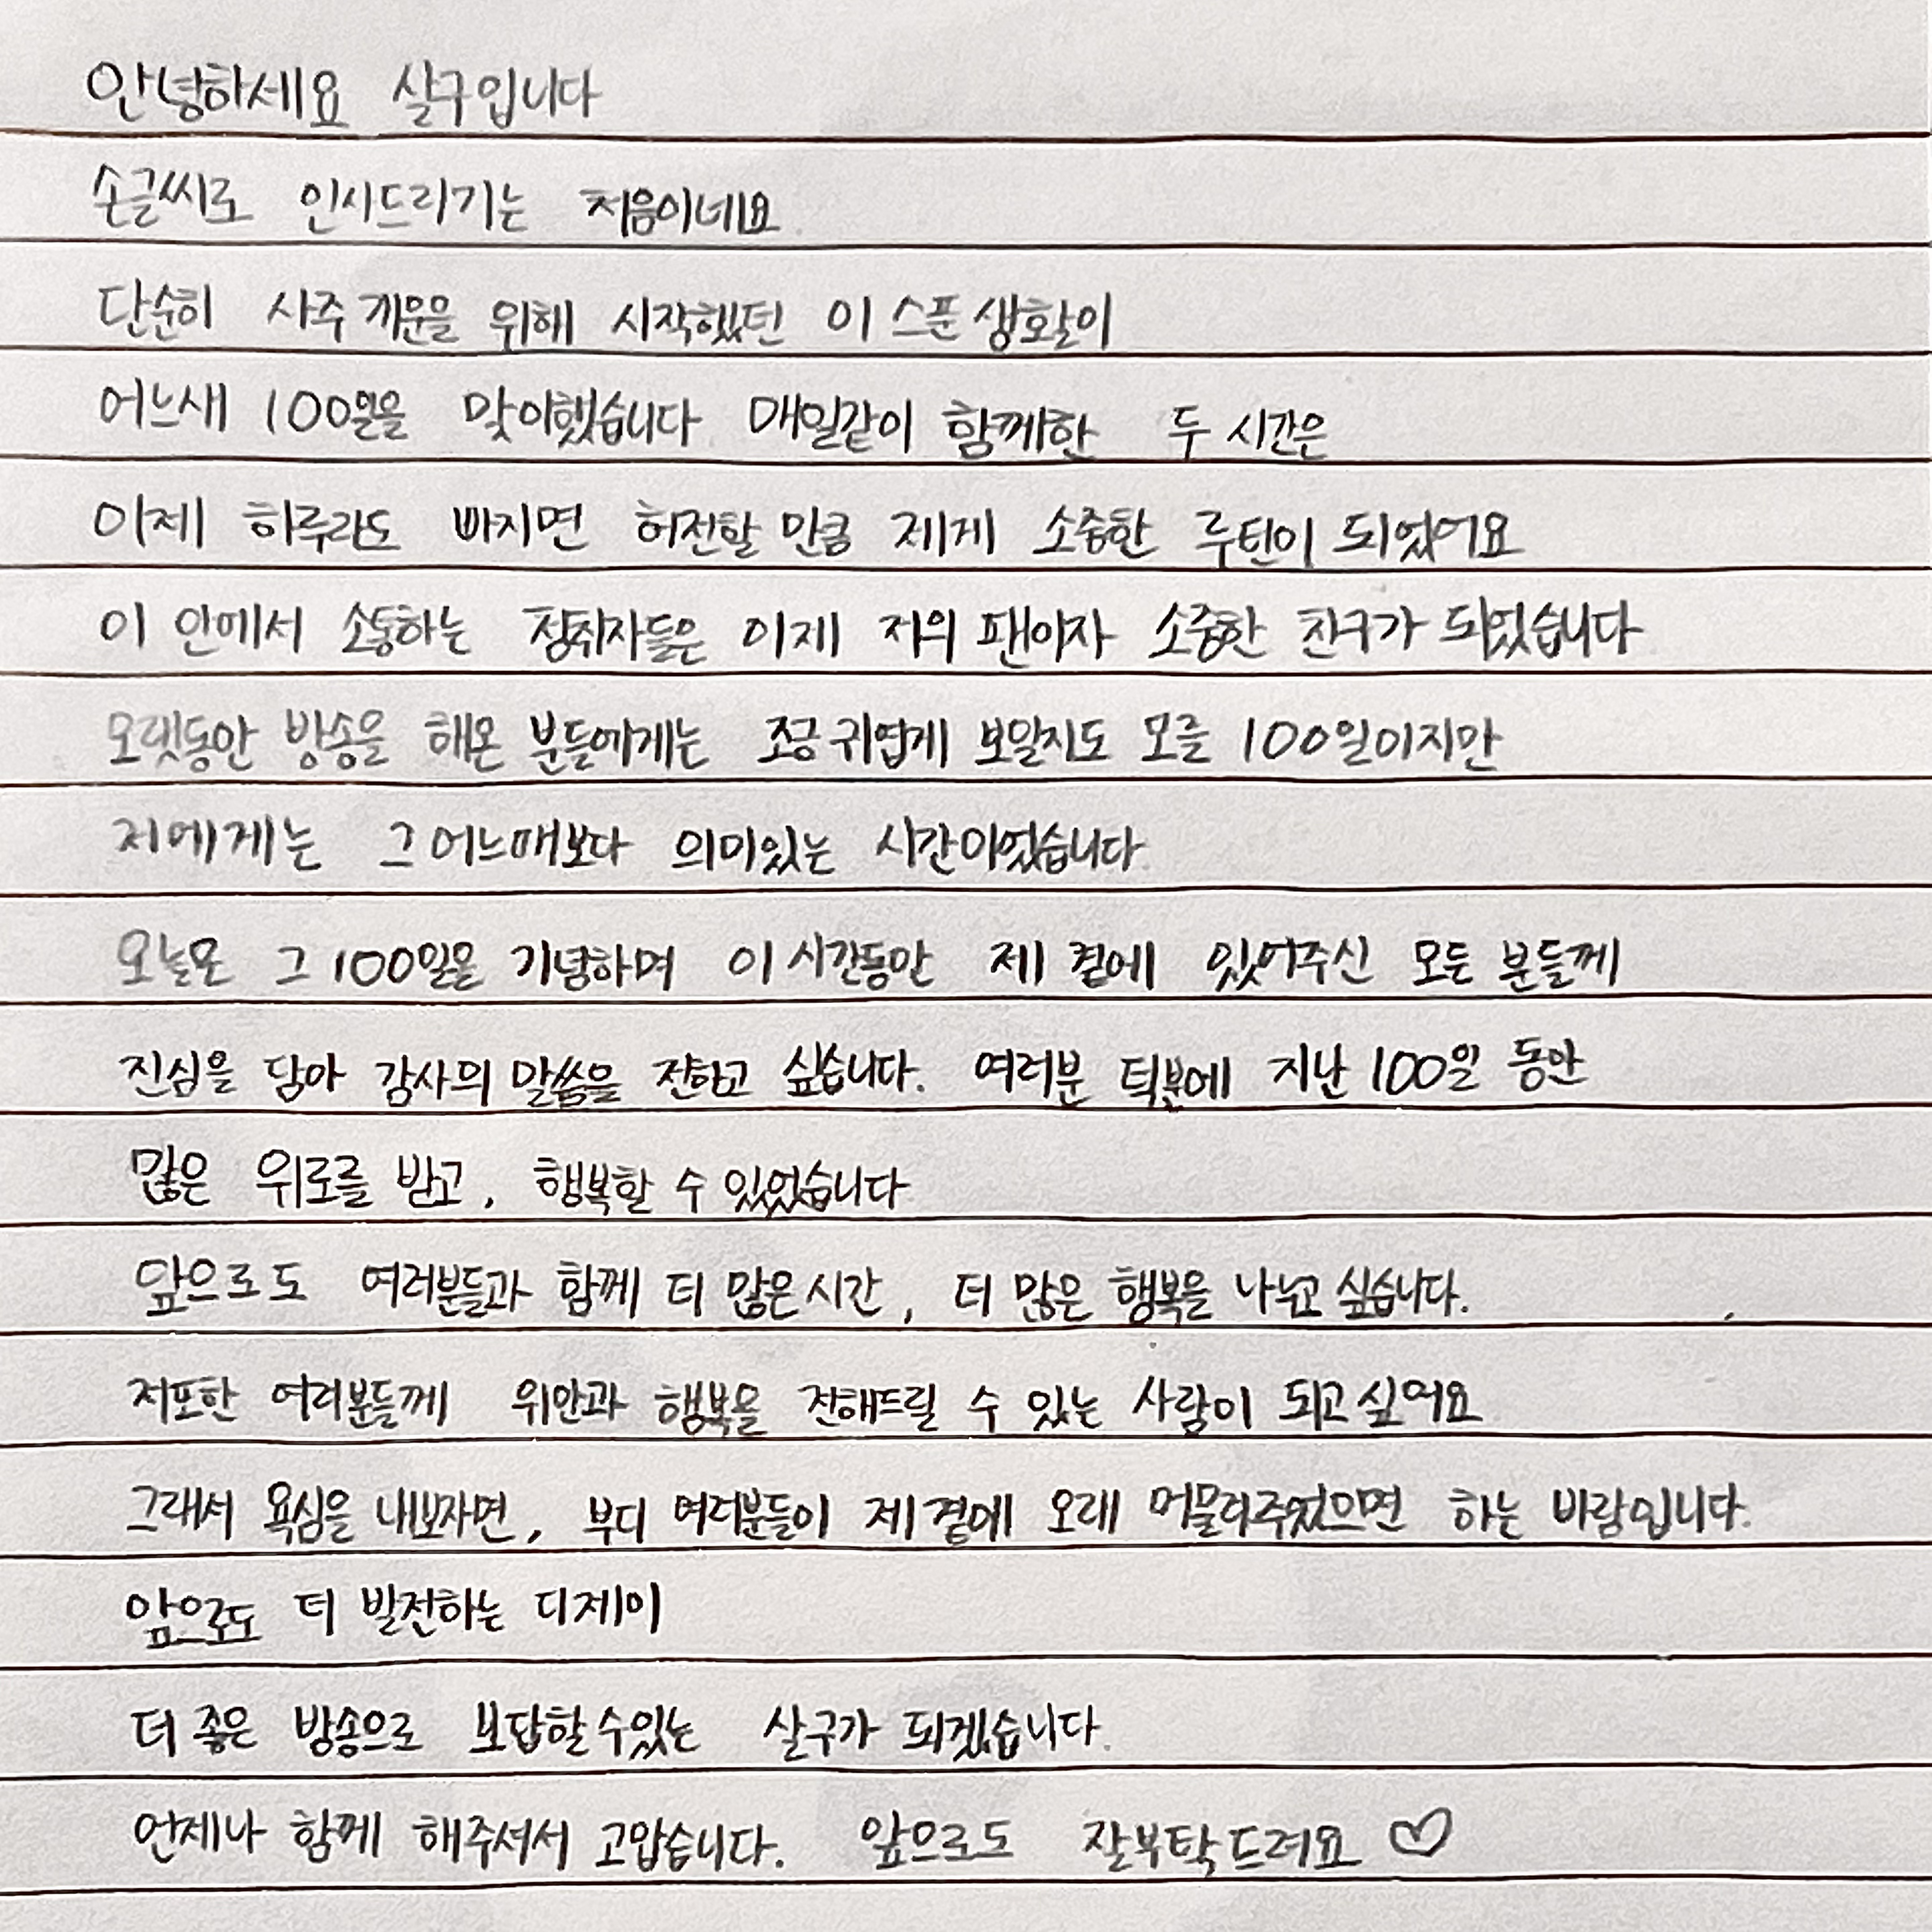 안녕하세요 살구입니다
손글씨로 인사드리기는 처음이네요
단순히 사주 개운을 위해 시작했던 이 스푼 생활이
어느새 100일을 맞이했습니다 매일같이 함께한 두 시간은
이제 하루라도 빠지면 허전할 만큼 제게 소중한 루틴이 되었어요
이 안에서 소통하는 청취자들은 이제 저의 팬이자 소중한 친구가 되었습니다
오랫동안 방송을 해온 분들에게는 조금 귀엽게 보일지도 모를 100일이지만
저에게는 그 어느때보다 의미있는 시간이었습니다.
오늘은 그 100일을 기념하며 이 시간동안 제 곁에 있어주신 모든 분들께
진심을 담아 감사의 말씀을 전하고 싶습니다. 여러분 덕분에 지난 100일 동안
많은 위로를 받고, 행복할 수 있었습니다
앞으로도 여러분들과 함께 더 많은 시간, 더 많은 행복을 나누고 싶습니다.
저또한 여러분들께 위안과 행복을 전해드릴 수 있는 사람이 되고 싶어요
그래서 욕심을 내보자면, 부디 여러분들이 제 곁에 오래 머물러주었으면 하는 바람입니다.
앞으로도 더 발전하는 디제이
더 좋은 방송으로 보답할 수 있는 살구가 되겠습니다.
언제나 함께 해주셔서 고맙습니다. 앞으로도 잘부탁드려요 ♡